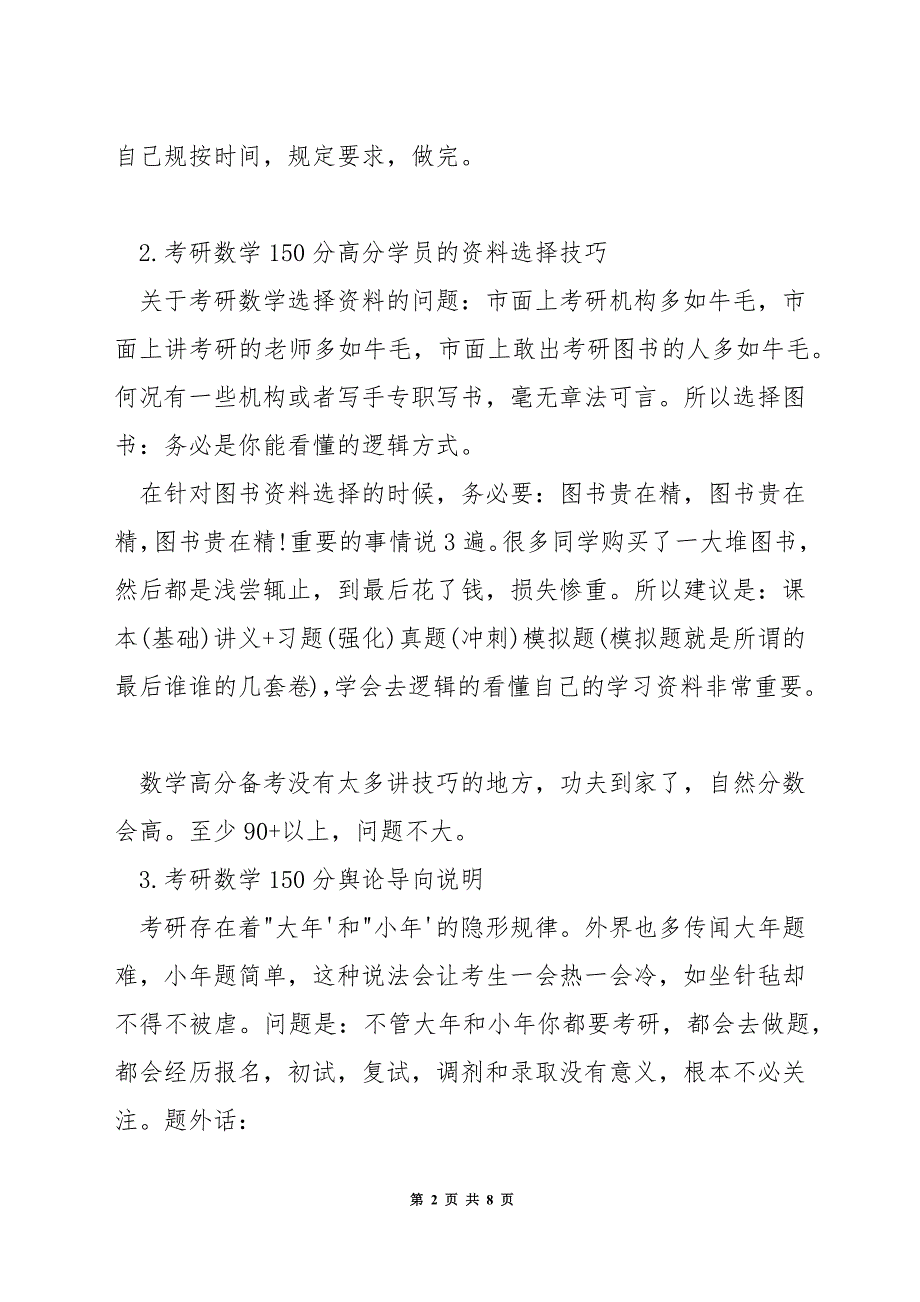 自己规按时间，规定要求，做完。
2.考研数学150分高分学员的资料选择技巧
关于考研数学选择资料的问题：市面上考研机构多如牛毛，市
面上讲考研的老师多如牛毛，市面上敢出考研图书的人多如牛毛。
何况有一些机构或者写手专职写书，毫无章法可言。所以选择图
书：务必是你能看懂的逻辑方式。
在针对图书资料选择的时候，务必要：图书贵在精，图书贵在
精,图书贵在精!重要的事情说3遍。很多同学购买了一大堆图书，
然后都是浅尝辄止，到最后花了钱，损失惨重。所以建议是：课
本(基础)讲义+习题(强化)真题(冲刺)模拟题(模拟题就是所谓的
最后谁谁的几套卷),学会去逻辑的看懂自己的学习资料非常重要。
数学高分备考没有太多讲技巧的地方，功夫到家了，自然分数
会高。至少90+以上，问题不大。
3.考研数学150分舆论导向说明
考研存在着"大年'和"小年'的隐形规律。外界也多传闻大年题
难，小年题简单，这种说法会让考生一会热一会冷，如坐针毡却
不得不被虐。问题是：不管大年和小年你都要考研，都会去做题，
都会经历报名，初试，复试，调剂和录取没有意义，根本不必关
注。题外话：
第 2 页 共 8 页